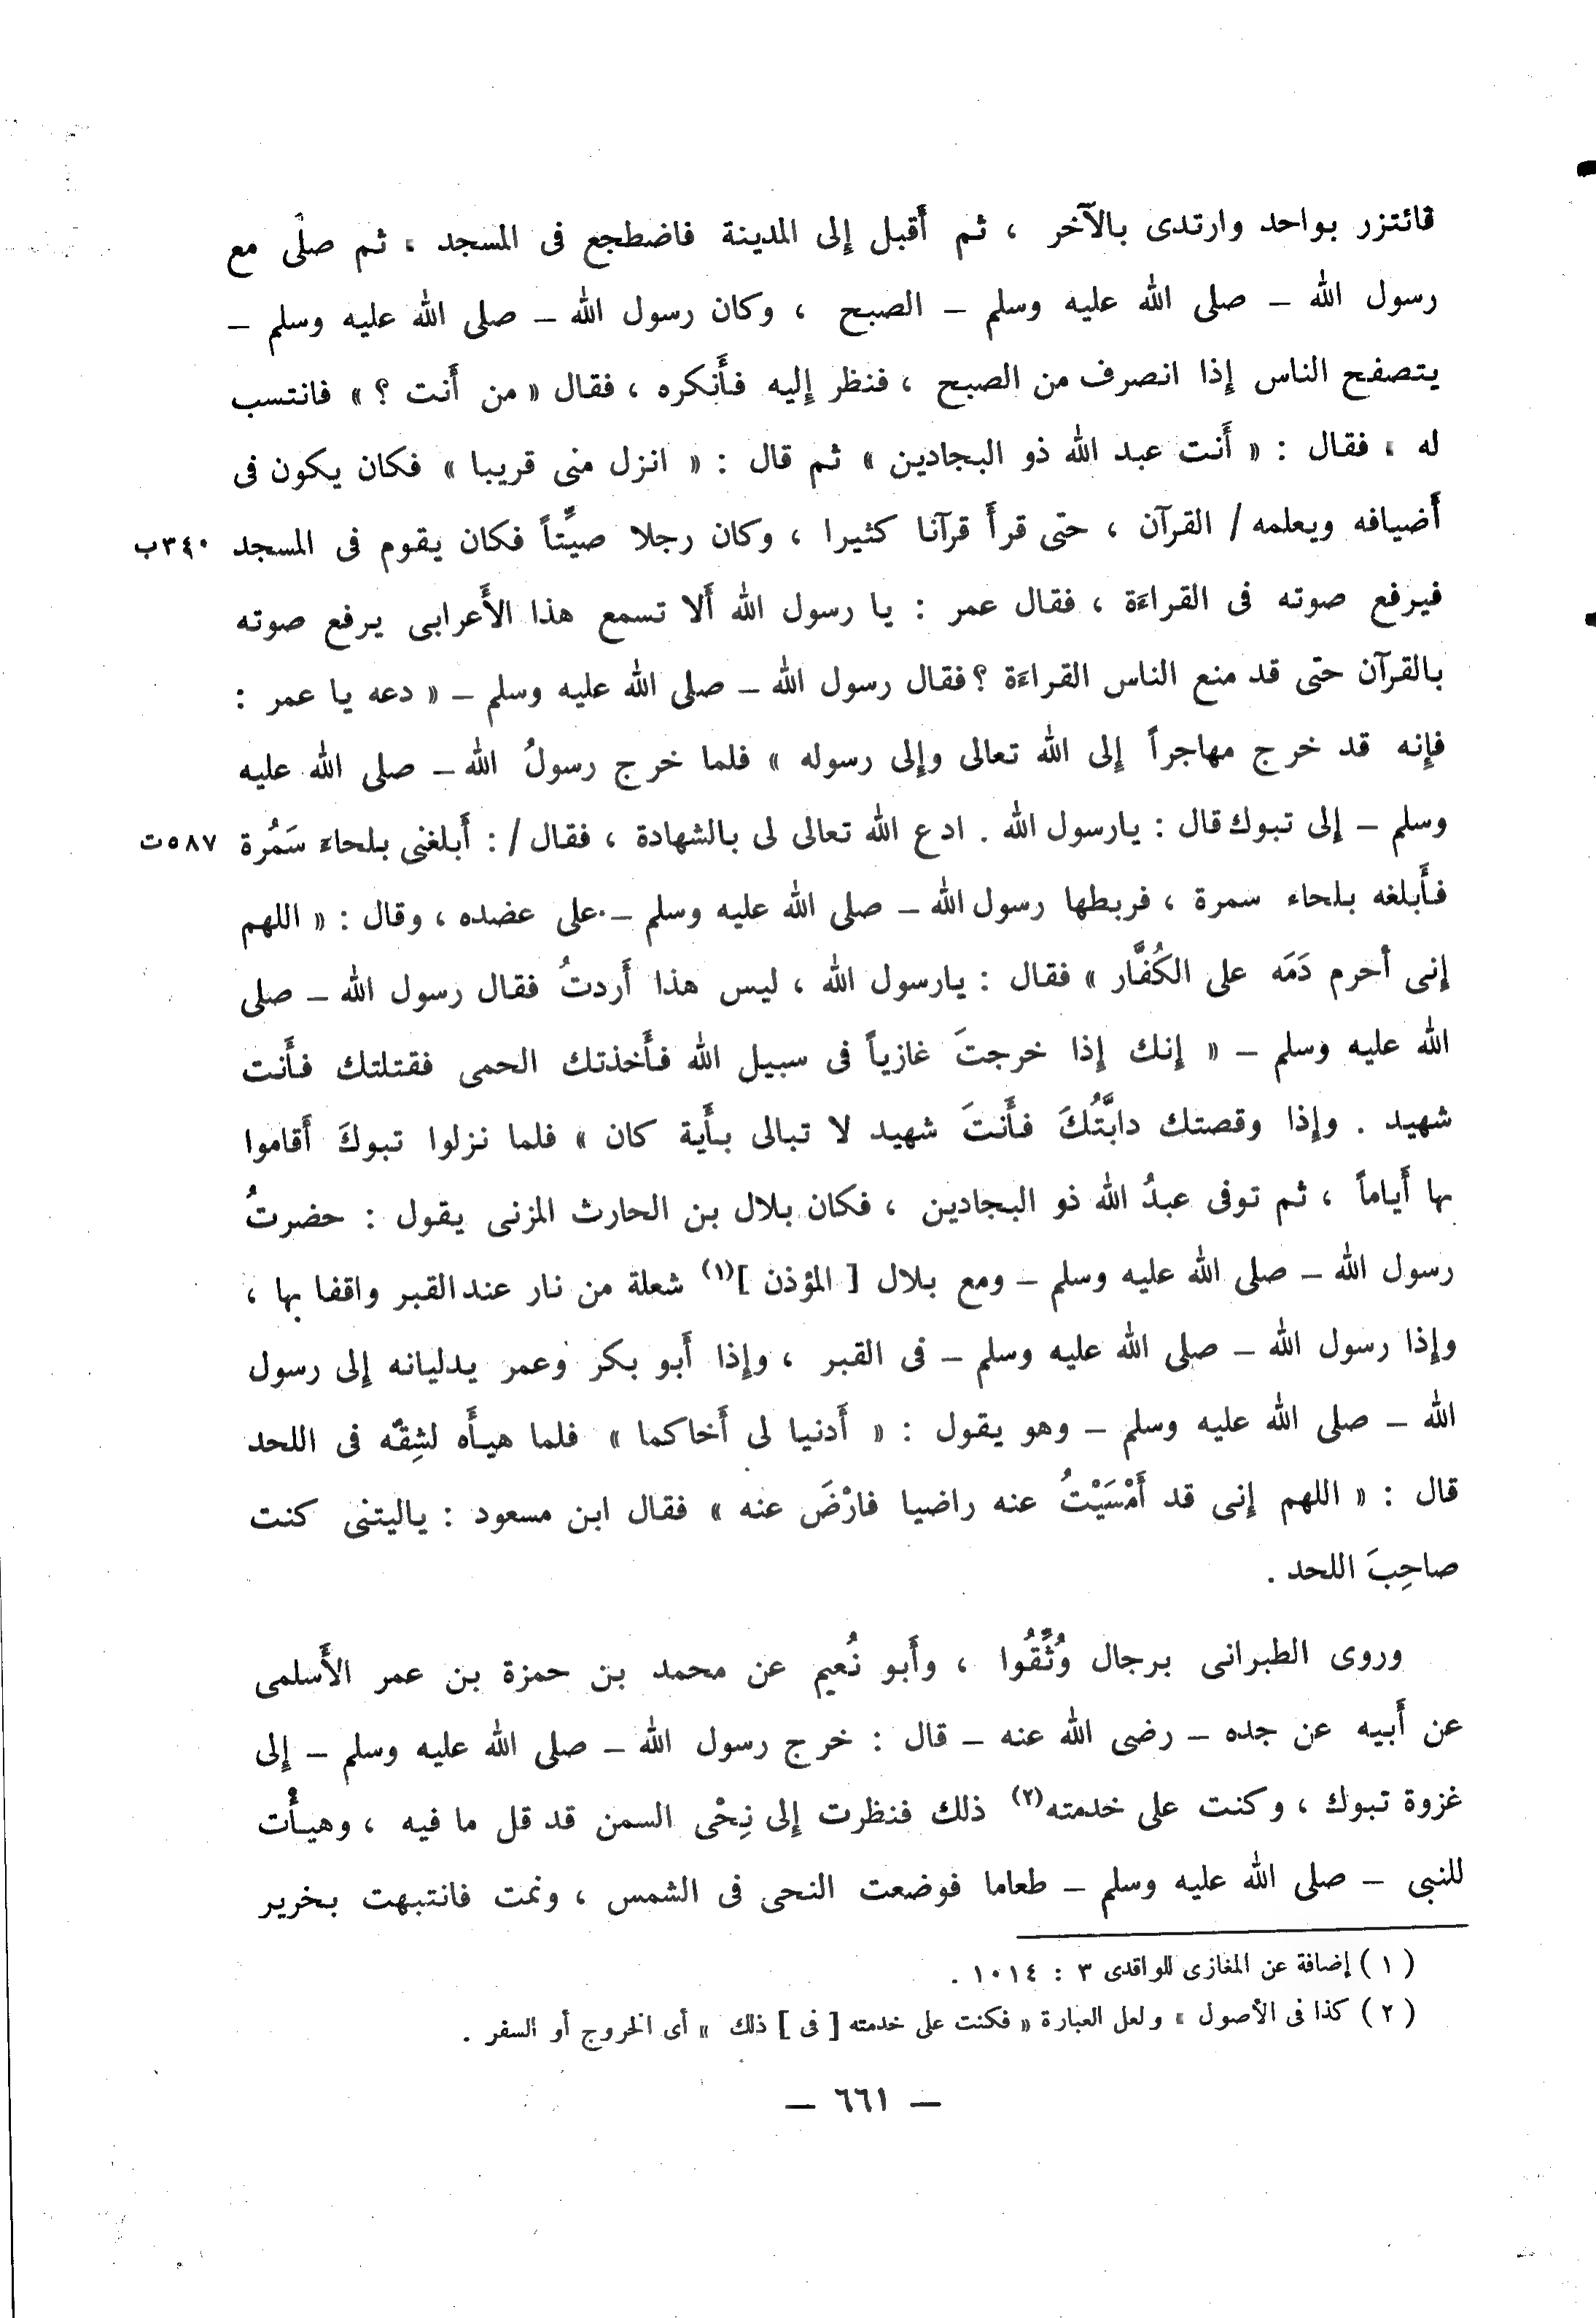 فائتزر بواحد وارتدى بالآخر ، ثم أَقبل إلى المدينة فاضطجع فى المسجد ، ثم صلَّى مع
رسول الله – صلى الله عليه وسلم – الصبح ، وكان رسول الله – صلى الله عليه وسلم –
يتصفح الناس إذا انصرف من الصبح ، فنظر إليه فأَنكره ، فقال « من أَنت ؟ » فانتسب
له ، فقال : « أَنت عبد الله ذو البجادين » ثم قال : « انزل منى قريبا » فكان يكون فى
أَضيافه ويعلمه / القرآن ، حتى قرأَ قرآنا كثيرا ، وكان رجلا صيِّتاً فكان يقوم فى المسجد ٣٤٠ب
فيرفع صوته فى القراءَة ، فقال عمر : يا رسول الله أَلا تسمع هذا الأَعرابى يرفع صوته
بالقرآن حتى قد منع الناس القراءَة ؟ فقال رسول الله – صلى الله عليه وسلم – « دعه يا عمر :
فإنه قد خرج مهاجراً إلى الله تعالى وإلى رسوله » فلما خرج رسولُ الله – صلى الله عليه
وسلم – إلى تبوك قال : يارسول الله . ادع الله تعالى لى بالشهادة ، فقال / : أَبلغنى بلحاءَ سَمُرة ٥٨٧ت
فأَبلغه بلحاء سمرة ، فربطها رسول الله – صلى الله عليه وسلم – على عضده ، وقال : « اللهم
إنى أحرم دَمَه على الكُفَّار » فقال : يارسول الله ، ليس هذا أَردتُ فقال رسول الله – صلى
الله عليه وسلم – « إنك إذا خرجتَ غازياً فى سبيل الله فأَخذتك الحمى فقتلتك فأَنت
شهيد . وإذا وقصتك دابَّتُكَ فأَنتَ شهيد لا تبالى بأَية كان » فلما نزلوا تبوكَ أَقاموا
بها أَياماً ، ثم توفى عبدُ الله ذو البجادين ، فكان بلال بن الحارث المزنى يقول : حضرتُ
رسول الله – صلى الله عليه وسلم – ومع بلال [ المؤذن ](١) شعلة من نار عند القبر واقفا بها ،
وإذا رسول الله – صلى الله عليه وسلم – فى القبر ، وإذا أَبو بكر وعمر يدليانه إلى رسول
الله – صلى الله عليه وسلم – وهو يقول : « أَدنيا لى أَخاكما » فلما هيأَه لشِقِّه فى اللحد
قال : « اللهم إنى قد أَمْسَيْتُ عنه راضيا فارْضَ عنه » فقال ابن مسعود : ياليتنى كنت
صاحِبَ اللحد .
وروى الطبرانى برجال وُثِّقُوا ، وأَبو نُعيم عن محمد بن حمزة بن عمر الأَسلمى
عن أَبيه عن جده – رضى الله عنه – قال : خرج رسول الله – صلى الله عليه وسلم – إلى
غزوة تبوك ، وكنت على خدمته(٢) ذلك فنظرت إلى نِحْى السمن قد قل ما فيه ، وهيأْت
للنبى – صلى الله عليه وسلم – طعاما فوضعت النحى فى الشمس ، ونمت فانتبهت بخرير
( ١ ) إضافة عن المغازى للواقدى ٣ : ١٠١٤ .
( ٢ ) كذا فى الأصول » ولعل العبارة « فكنت على خدمته [ فى ] ذلك » أى الخروج أو السفر .
– ٦٦١ –